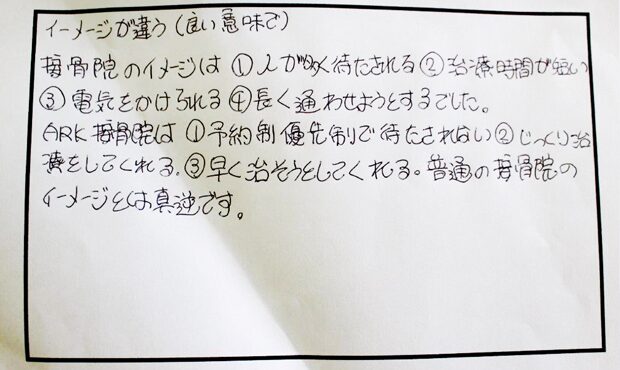 イメージが違う(良い意味で)
接骨院のイメージは ①人が多く待たされる ②治療時間が短い
③電気をかけられる ④長く通わせようとするでした。
ARK接骨院は ①予約制優先制で待たされない ②じっくり治
療をしてくれる。③早く治そうとしてくれる。普通の接骨院の
イメージとは真逆です。